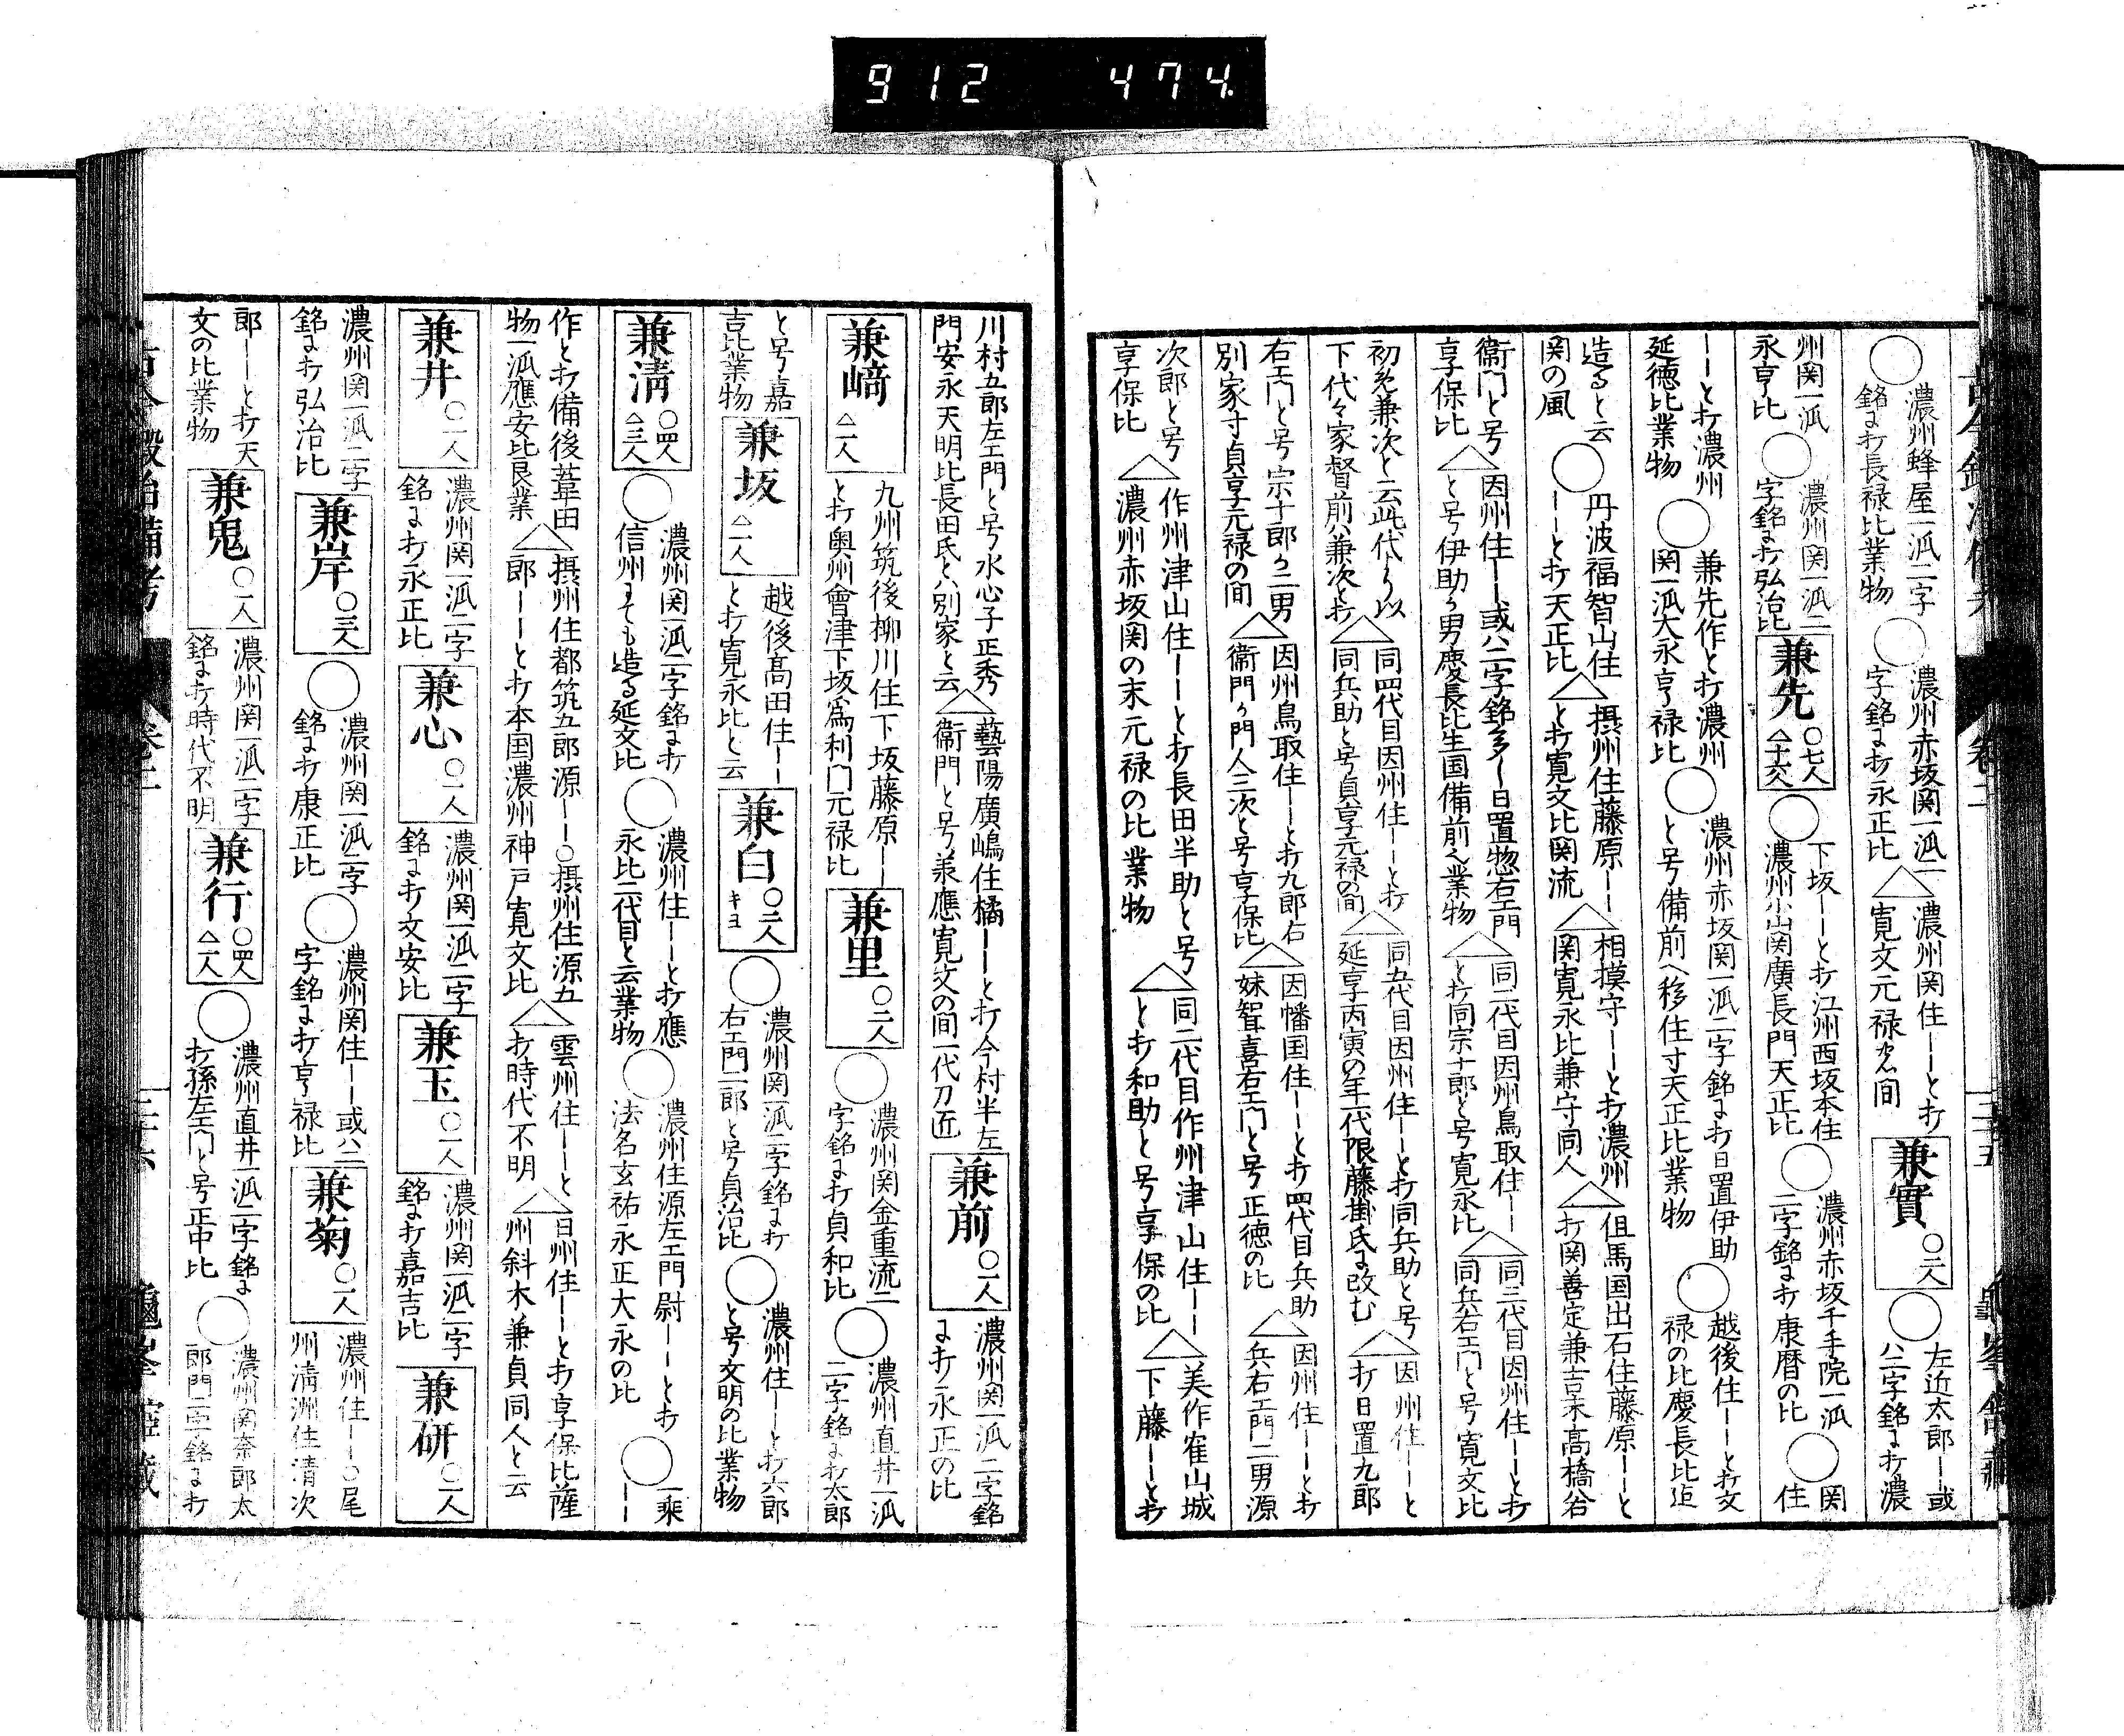 912 474.
◯濃州蜂屋一派二字
銘ニ打長禄比業物
◯濃州赤坂関一派二
字銘ニ打永正比
△濃州関住――と打
寛文元禄之間
兼實 ◯二人
◯左近太郎―或
ハ二字銘ニ打濃
州関一派
永享比
◯濃州関一派二
字銘ニ打弘治比
兼先 ◯七人 △十六人
◯下坂――と打江州西坂本住
濃州小山関廣長門天正比
◯濃州赤坂千手院一派
二字銘ニ打康暦の比
◯関
住
――と打濃州
延徳比業物
◯兼先作と打濃州
関一派大永享禄比
◯濃州赤坂関一派二字銘ニ打日置伊助
と号備前へ移住す天正比業物
◯越後住――と打文
禄の比慶長比迠
造ると云
関の風
◯丹波福智山住
――と打天正比
△摂州住藤原――
と打寛文比関流
△相摸守――と打濃州
関寛永比兼守同人
△但馬国出石住藤原――と
打関善定兼吉末高橋谷
衛門と号
享保比
△因州住――或ハ二字銘多し日置惣右エ門
と号伊助の男慶長比生国備前之業物
△同二代目因州鳥取住――
と打同宗十郎と号寛永比
△同三代目因州住――と打
同兵右エ門と号寛文比
初兼次と云此代より以
下代々家督前ハ兼次と打
△同四代目因州住――と打
同兵助と号貞享元禄の間
△同五代目因州住――と打同兵助と号
延享丙寅の年一代限藤掛氏に改む
△因州住――と
打日置九郎
右エ門と号宗十郎の二男
別家す貞享元禄の間
△因州鳥取住――と打九郎右
衛門の門人三次と号享保比
△因幡国住――と打四代目兵助
妹聟喜右エ門と号正徳の比
△因州住――と打
兵右エ門二男源
次郎と号
享保比
△作州津山住――と打長田半助と号
濃州赤坂関の末元禄の比業物
△同二代目作州津山住――
と打和助と号享保の比
△美作隺山城
下藤――と打
川村五郎左エ門と号水心子正秀
門安永天明比長田氏と別家と云
△藝陽廣嶋住橘――と打今村半左
衛門と号承應寛文の間一代刀匠
兼前 ◯一人
濃州関一派二字銘
ニ打永正の比
兼﨑 △一人
九州筑後柳川住下坂藤原――
と打奥州會津下坂為利門元禄比
兼里 ◯二人
◯濃州関金重流二
字銘ニ打貞和比
◯濃州直井一派
二字銘ニ打太郎
と号嘉
吉比業物
兼坂 △一人
越後高田住――
と打寛永比と云
兼白 ◯二人 キヨ
◯濃州関一派二字銘ニ打
右エ門二郎と号貞治比
◯濃州住――と打六郎
と号文明の比業物
兼淸 ◯四人 △三人
◯濃州関一派二字銘ニ打
信州ニても造る延文比
◯濃州住――と打應
永比二代目と云業物
◯濃州住源左エ門尉――と打
法名玄祐永正大永の比
◯一乘
――
作と打備後葦田
物一派應安比良業
△摂州住都筑五郎源――◯摂州住源五
郎――と打本国濃州神戸寛文比
△雲州住――と
打時代不明
△日州住――と打享保比薩
州斜木兼貞同人と云
兼井 ◯一人
濃州関一派二字
銘ニ打永正比
兼心 ◯一人
濃州関一派二字
銘ニ打文安比
兼玉 ◯一人
濃州関一派二字
銘ニ打嘉吉比
兼研 ◯一人
濃州関一派二字
銘ニ打弘治比
兼岸 ◯三人
◯濃州関一派二字
銘ニ打康正比
◯濃州関住――或ハ二
字銘ニ打享禄比
兼菊 ◯一人
濃州住――◯尾
州淸洲住淸次
郎――と打天
文の比業物
兼鬼 ◯一人
濃州関一派二字
銘ニ打時代不明
兼行 ◯四人 △二人
◯濃州直井一派二字銘ニ
打孫左エ門と号正中比
◯濃州関奈良太
郎門二字銘ニ打